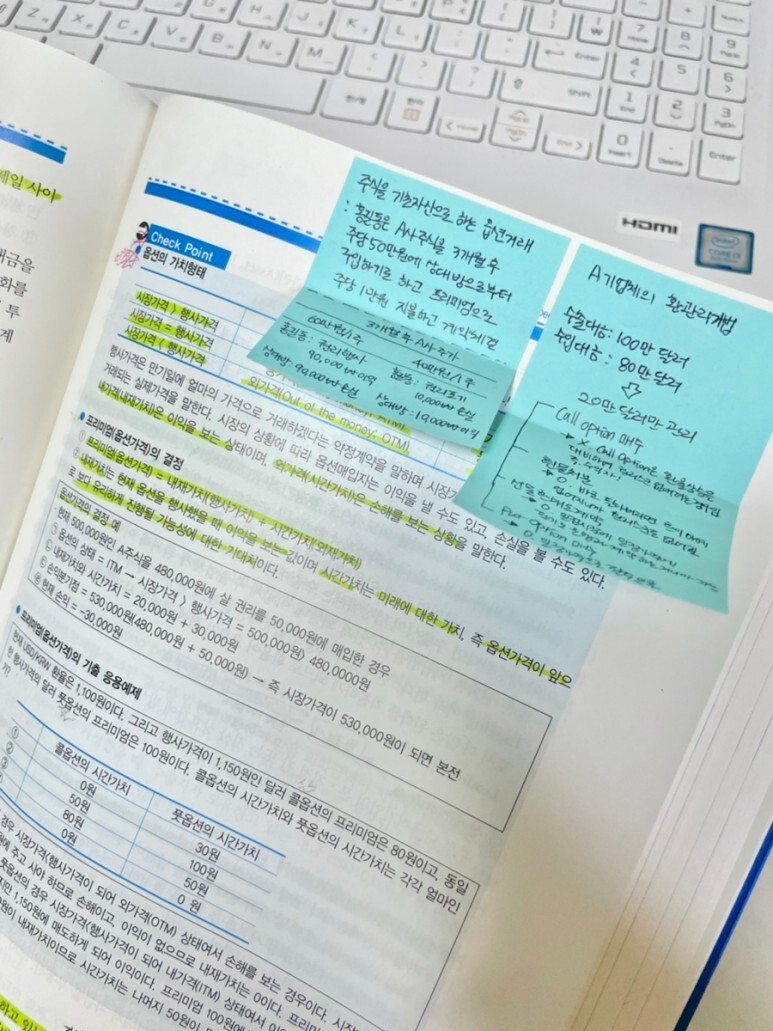 Check Point
옵션의 가치형태
시장가격 > 행사가격
시장가격 = 행사가격
시장가격 < 행사가격
외가격(Out of the money; OTM)
행사가격은 만기일에 얼마의 가격으로 거래하겠다는 약정계약을 말하며 시장가
거래되는 실제가격을 말한다. 시장의 상황에 따라 옵션매입자는 이익을 낼 수도 있고, 손실을 볼 수도 있다.
내가격(내재가치)은 이익을 보는 상태이며, 외가격(시간가치)은 손해를 보는 상황을 말한다.
프리미엄(옵션가격)의 결정
① 프리미엄(옵션가격) = 내재가치(행사가치) + 시간가치(외재가치)
② 내재가치는 현재 옵션을 행사했을 때 이익을 보는 값이며 시간가치는 미래에 대한 가치, 즉 옵션가격이 앞으
로 보다 유리하게 진행될 가능성에 대한 기대치이다.
옵션가격의 결정 예
현재 500,000원인 A주식을 480,000원에 살 권리를 50,000원에 매입한 경우
옵션의 상태 = ITM → 시장가격 > 행사가격 = 500,000원 > 480,0000원
내재가치와 시간가치 = 20,000원 + 30,000원
손익분기점 = 530,000원(480,000원 + 50,000원) → 즉 시장가격이 530,000원이 되면 본전
현재 손익 = -30,000원
프리미엄(옵션가격)의 기출 응용예제
현재 USD/KRW 환율은 1,100원이다. 그리고 행사가격이 1,150원인 달러 콜옵션의 프리미엄은 80원이고, 동일
한 행사가격의 달러 풋옵션의 프리미엄은 100원이다. 콜옵션의 시간가치와 풋옵션의 시간가치는 각각 얼마인
가?
콜옵션의 시간가치 풋옵션의 시간가치
① 0원 30원
② 50원 100원
80원 50원
0원 0 원
경우 시장가격<행사가격이 되어 외가격(OTM) 상태여서 손해를 보는 경우이다. 시장
원에 주고 사야 하므로 손해이고, 이익이 없으므로 내재가치는 0이다. 프리미
풋옵션의 경우 시장가격<행사가격이 되어 내가격(ITM) 상태여서 이
지만 1,150원에 매도하게 되어 이익이다. 프리미엄 100원에
원이 내재가치이므로 시간가치는 나머지 50원이
주식을 기초자산으로 하는 옵션거래
: 홍길동은 A사 주식을 3개월후
주당 50만원에 상대방으로부터
구입하기로 하고 프리미엄으로
주당 1만원 지불하고 계약체결
3개월 후 A사 주가
60만원/1주 40만원/1주
홍길동 : 권리행사 홍길동 : 권리포기
90,000원 이익 10,000원 손실
상대방 : 90,000원 손실 상대방 : 10,000원 이익
A기업체의 환관리기법
수출대금 : 100만 달러
수입대금 : 80만 달러
20만 달러만 고려
Call option 매수
Put option 매수
HDMI
intel